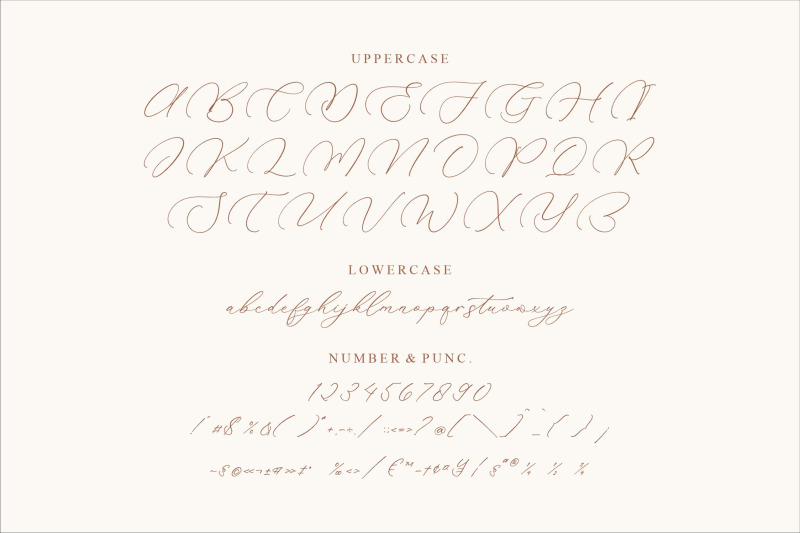 UPPERCASE
A B C D E F G H I
J K L M N O P Q R
S T U V W X Y Z
LOWERCASE
abcdefghijklmnopqrstuvwxyz
NUMBER & PUNC.
1234567890
! " # $ % & ( ) * + , - . / : ; < = > ? @ [ \ ] ^ _ ` { } |